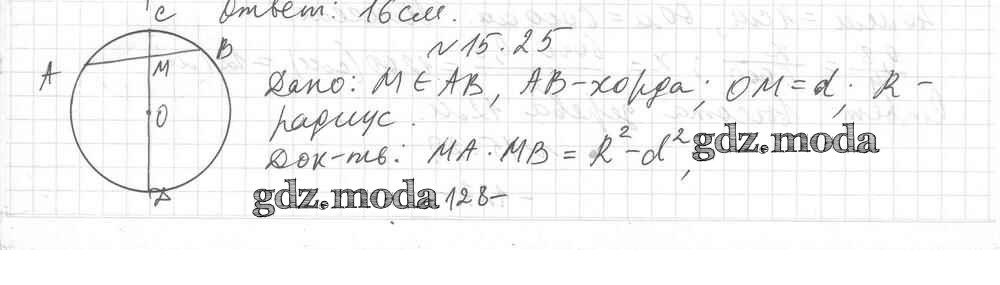 C Ответ: 16 см.
№ 15.25
A B M O D
Дано: M ∈ AB, AB - хорда; OM = d; R -
радиус.
Док-ть: MA · MB = R² - d²,
gdz.moda
gdz.moda
- 128 -